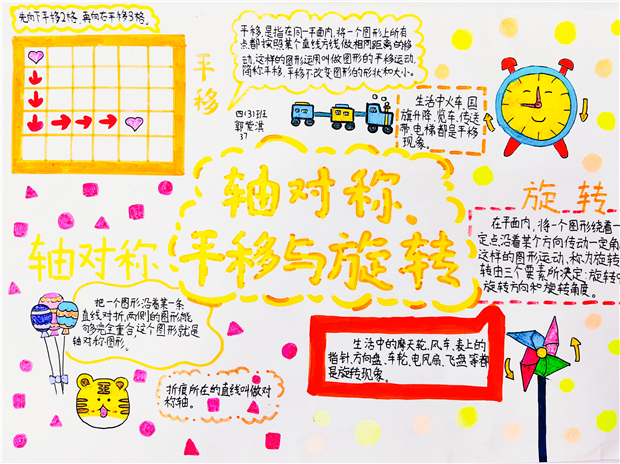 先向下平移2格,再向右平移3格。
平移
平移,是指在同一平面内,将一个图形上所有
点都按照某个直线方向做相同距离的移
动,这样的图形运用叫做图形的平移运动,
简称平移,平移不改变图形的形状和大小。
四(3)班
37
生活中火车、国
旗升降、缆车、传送
带、电梯都是平移
现象。
轴对称、
平移与旋转
旋转
在平面内,将一个图形绕着一
定点沿着某个方向传动一定角
这样的图形运动,称为旋转
转由三个要素所决定:旋转中
旋转方向和旋转角度。
轴对称
把一个图形沿着某一条
直线对折,两侧的图形能
够完全重合,这个图形就是
轴对称图形。
折痕所在的直线叫做对
称轴。
生活中的摩天轮、风车、表上的
指针、方向盘、车轮、电风扇、飞盘等都
是旋转现象。